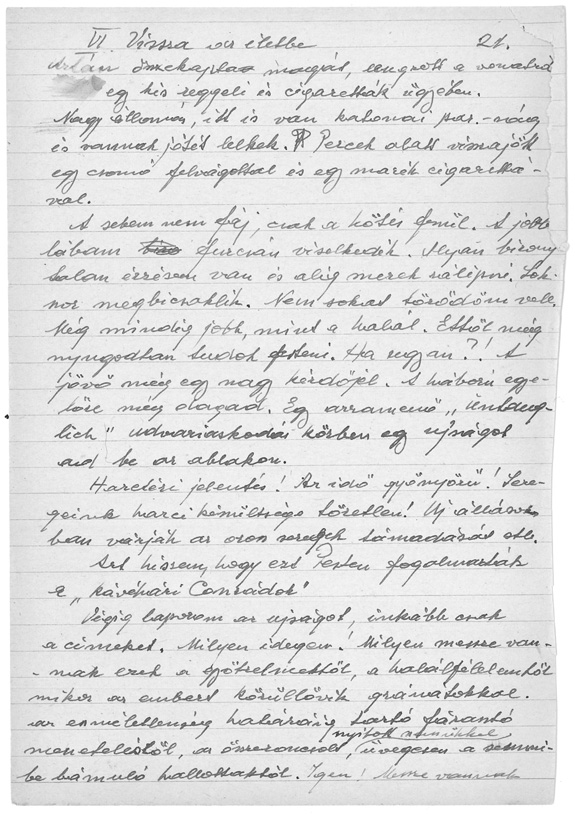 VI Vissza az életbe 21.
Aztán összekaptam magát, leugrott a vonatról
egy kis reggeli és cigaretták ügyében.
Nagy állomás, itt is van katonai par.-nság
és vannak jótét lelkek. Percek alatt visszajött
egy csomó felvágottal és egy marék cigarettá-
val.
A sebem nem fáj, csak a kötés feszül. A jobb
lábam furcsán viselkedik. Olyan bizony
talan érzésem van és alig merek rálépni. Sok-
szor megbicsaklik. Nem sokat törődöm vele.
Még mindig jobb, mint a halál. Ettől még
nyugodtan tudok festeni. Ha ugyan?! A
jövő még egy nagy kérdőjel. A háború egye-
lőre még dagad. Egy arramenő
udvariaskodás közben egy ujságot
ad be az ablakon.
Harctéri jelentés! Az idő gyönyörű! Sere-
geink harci készültsége töretlen! Uj állások-
ban várják az orosz seregek támadását stb.
Azt hiszem, hogy ezt Pesten fogalmazták
a „kávéházi Conrádok"
Végig lapozom az ujságot, inkább csak
a címeket. Milyen idegen! Milyen messze van-
-nak ezek a gyötrelmektől, a halálfélelemtől
mikor az embert körüllövik gránátokkal.
az eszméletlenség határáig tartó fárasztó
nyitott szemükkel
meneteléstől, az összeroncsolt, üvegesen a semmi-
be bámuló hallottaktól. Igen! Messze vannak